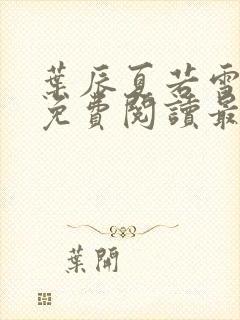 葉辰夏若雪
免費閱讀最
葉開